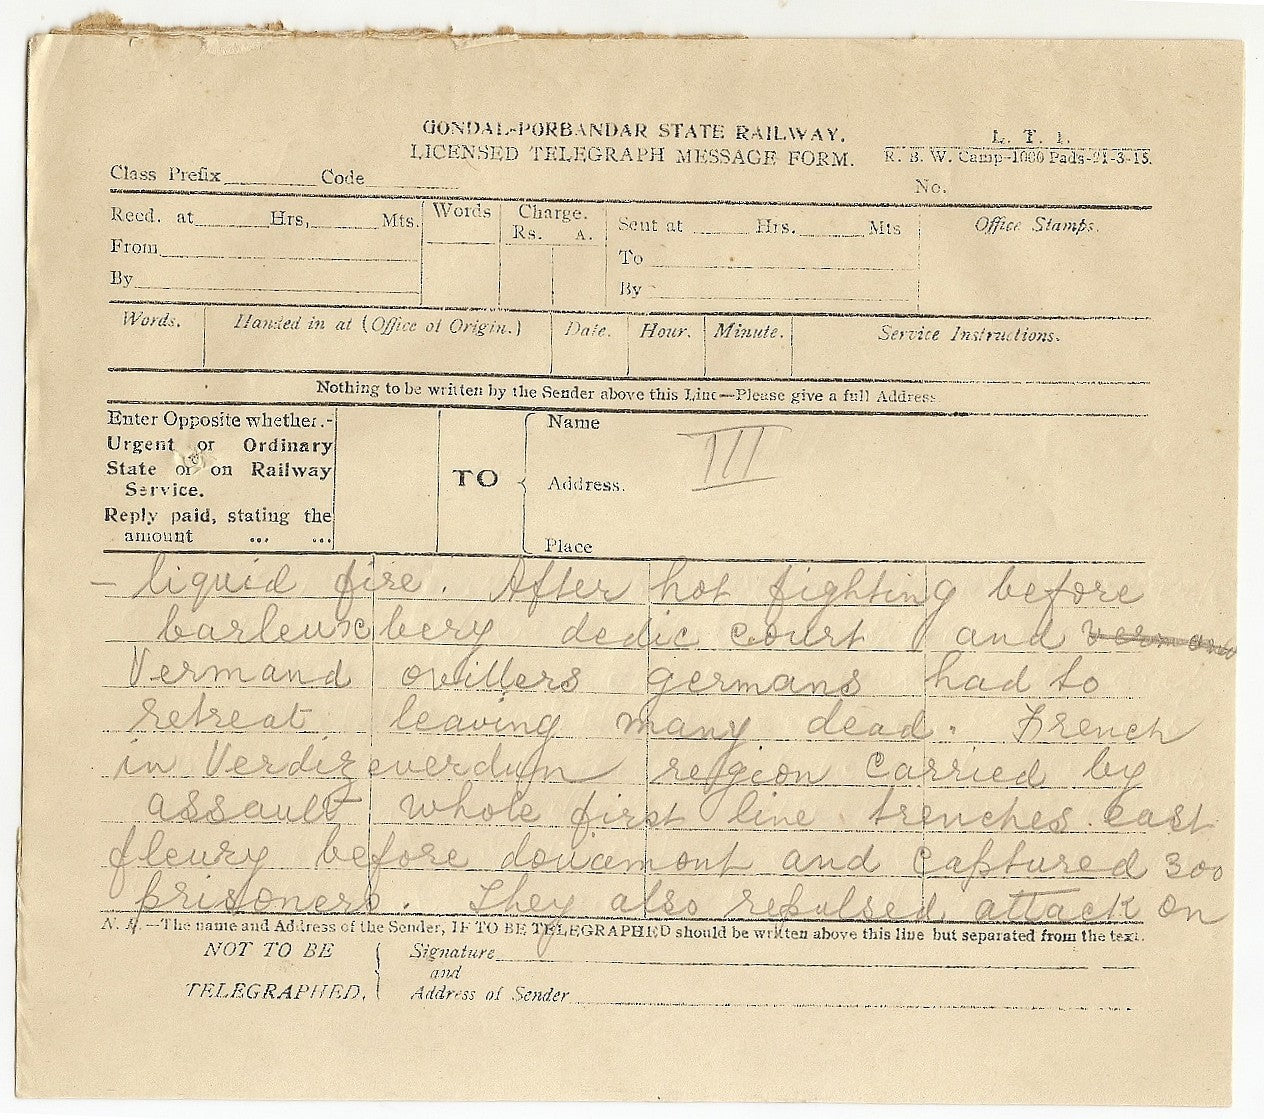 GONDAL-PORBANDAR STATE RAILWAY.
LICENSED TELEGRAPH MESSAGE FORM.
L. T. 1.
R. B. W. Camp-1000 Pads-21-3-15.
Class Prefix Code
No.
Recd. at Hrs, Mts.
From
By
Words
Charge.
Rs. A.
Sent at Hrs. Mts
To
By
Office Stamps.
Words. Handed in at (Office of Origin.) Date. Hour. Minute. Service Instructions.
Nothing to be written by the Sender above this Line—Please give a full Address.
Enter Opposite whether.-
Urgent or Ordinary
State or on Railway
Service.
Reply paid, stating the
amount ... ...
TO
Name
Address.
Place
III
– liquid fire. After hot fighting before
barleuxbery dedic court and
Vermand ovillers germans had to
retreat leaving many dead. French
in Verdizeverdun region carried by
assault whole first line trenches east
fleury before douamont and captured 300
prisoners. They also repulsed attack on
N. B.—The name and Address of the Sender, IF TO BE TELEGRAPHED should be written above this line but separated from the text.
NOT TO BE
TELEGRAPHED.
Signature
and
Address of Sender